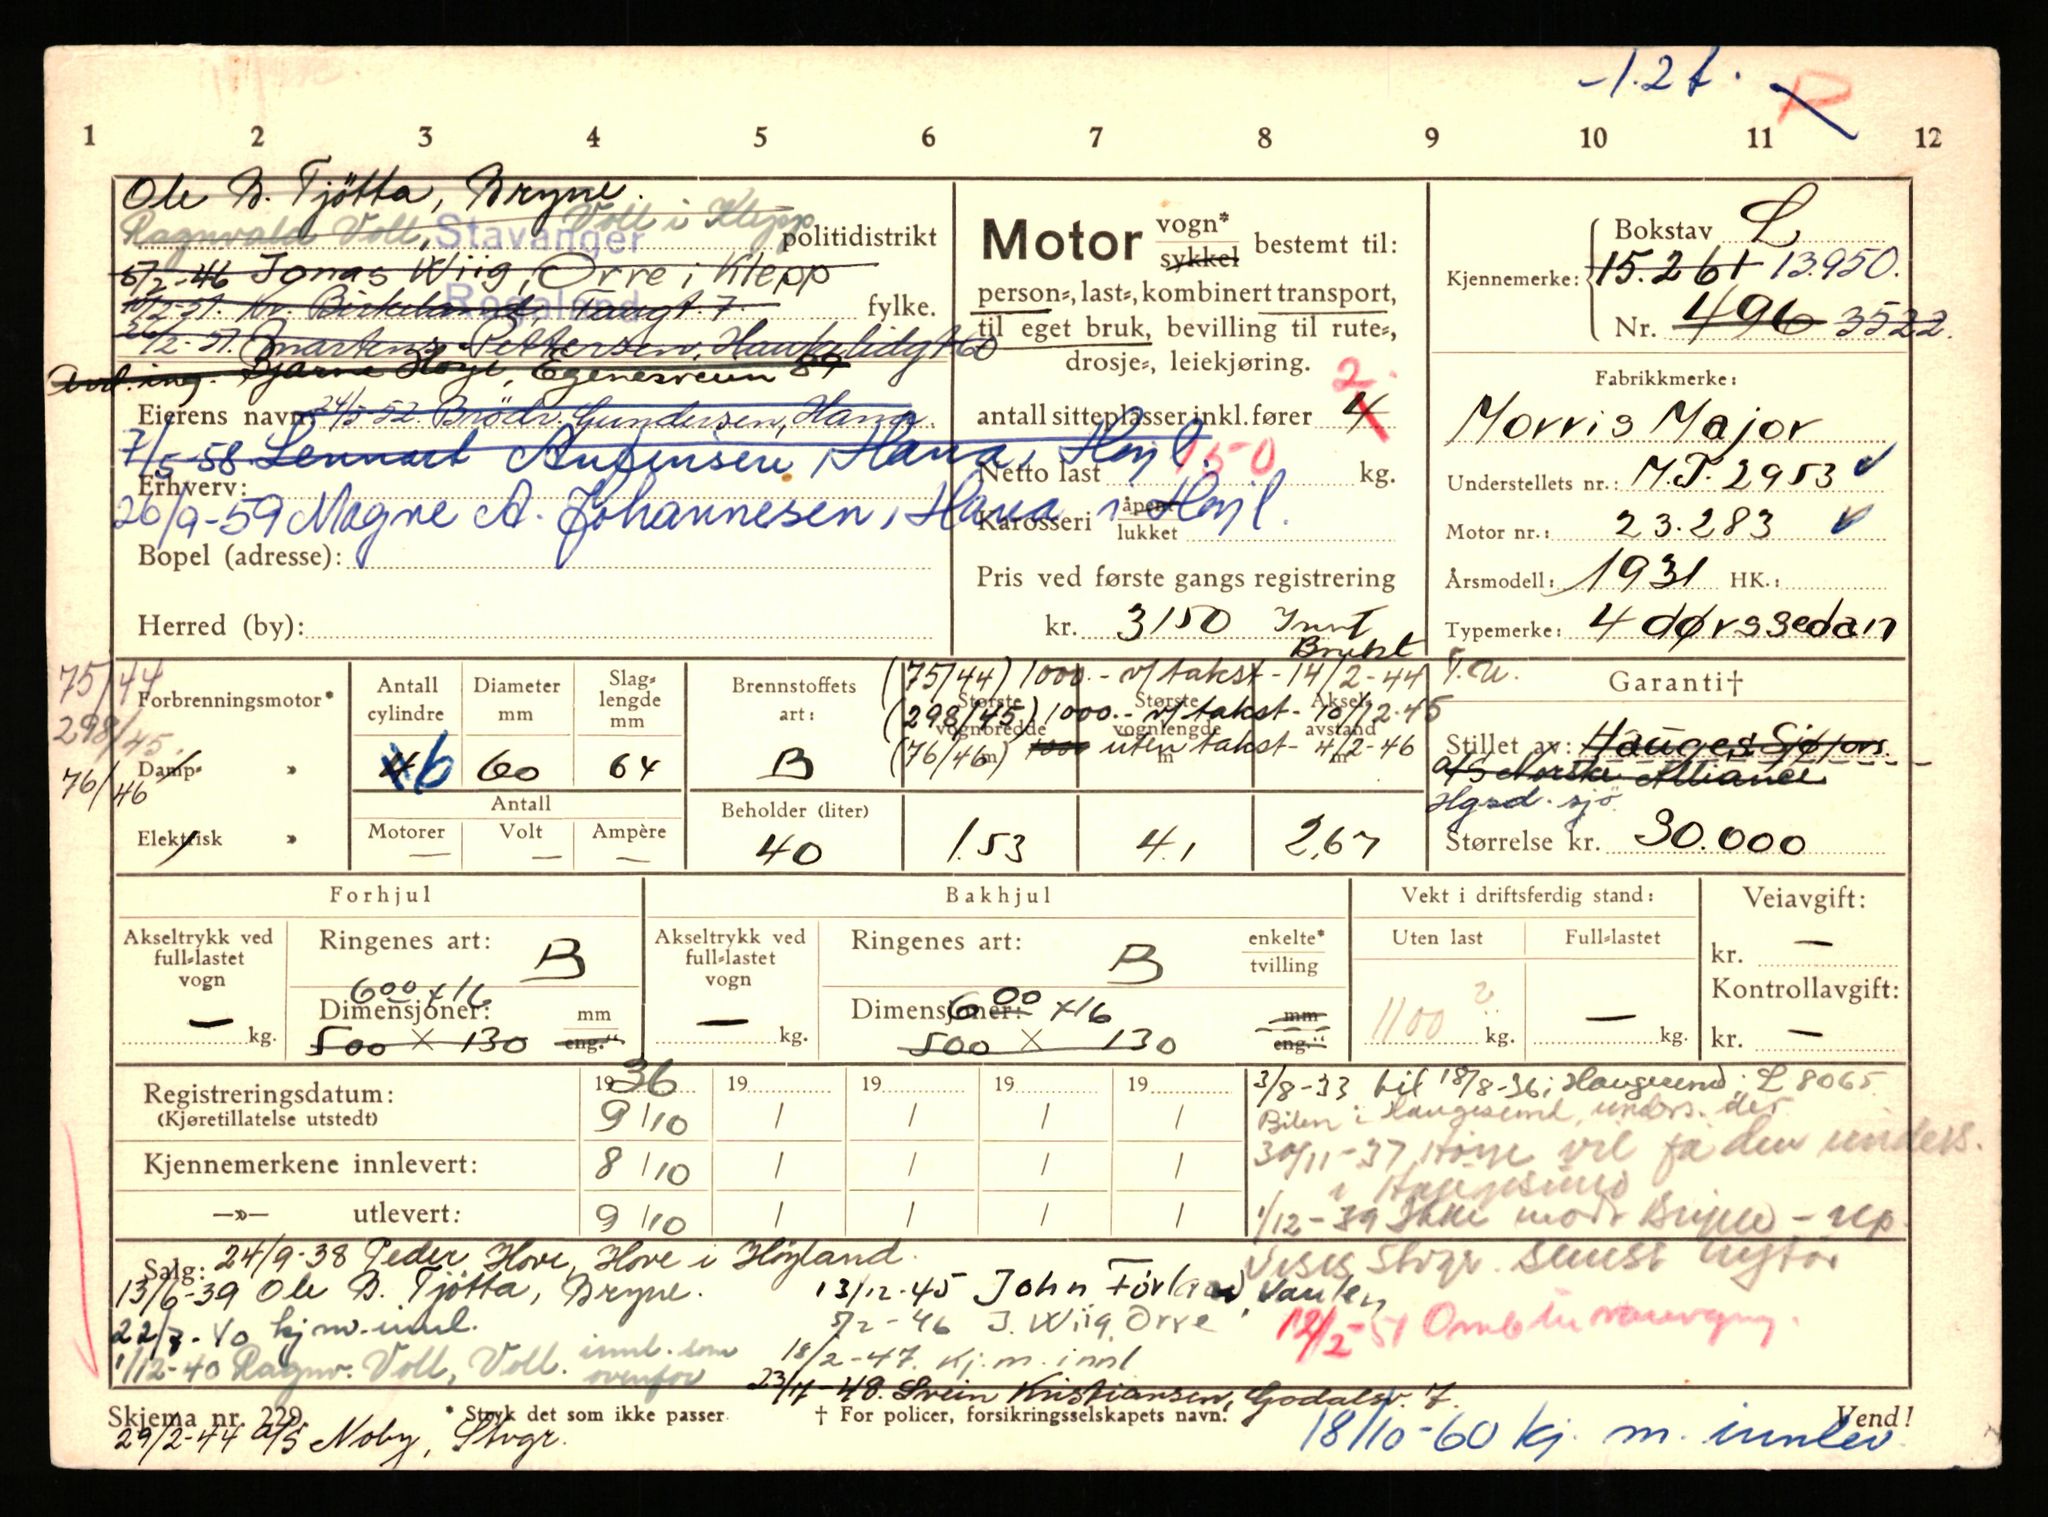 -1.2 t.
1 2 3 4 5 6 7 8 9 10 11 12
Ole B. Tjötta, Bryne.
Ragnvald Voll, Voll i Klepp
Stavanger politidistrikt
5/2-46 Jonas Wiig, Orre i Klepp
Rogaland fylke.
Kr. Birkeland
Martens Pettersen, Haukelidgt 60
Avd. ing. Bjarne Høye, Egenesveien 89
Eierens navn: 24/5-52. Brödr. Gundersen, Hana.
7/5-58 Lennart Hana, Høyl.
Erhverv:
26/9-59 Magne A. Johannesen, Hana i Høyl.
Bopel (adresse):
Herred (by):
Motor vogn* sykkel bestemt til:
person-, last-, kombinert transport,
til eget bruk, bevilling til rute-,
drosje-, leiekjøring.
antall sitteplasser inkl. fører 4 2.
Netto last 150 kg.
Karosseri åpent lukket
Pris ved første gangs registrering
kr. 3150 Innt
Brukt
Bokstav L
Kjennemerke: 15.261 13.950.
Nr. 496 3522.
Fabrikkmerke:
Morris Major
Understellets nr.: M.T. 2953
Motor nr.: 23.283
Årsmodell: 1931 HK.:
Typemerke: 4 dørs sedan
75/44
298/45.
76/46
Forbrenningsmotor*
Damp- »
Elektrisk »
Antall cylindre 4 6
Diameter mm 60
Slag-lengde mm 64
Antall
Motorer — Volt — Ampère —
Brennstoffets art: B
Beholder (liter) 40
(75/44) 1000.- v/takst - 14/2-44 T.U.
(298/45) 1000.- v/takst - 10/12-45
(76/46) 1000 uten takst - 4/2-46
Største vognbredde m 1.53
Største vognlengde m 4.1
Aksel-avstand m 2,67
Garanti†
Stillet av: Hauges. Sjøfors.
A/S Norske Alliance
Hgsd. sjö
Størrelse kr. 30.000
Forhjul
Akseltrykk ved full-lastet vogn
— kg.
Ringenes art: B
600 x 16
Dimensjoner: mm
500 × 130 eng."
Bakhjul
Akseltrykk ved full-lastet vogn
— kg.
Ringenes art: B enkelte* tvilling
600 x 16
Dimensjoner: mm
500 × 130 eng."
Vekt i driftsferdig stand:
Uten last Full-lastet
1100 ? kg. — kg.
Veiavgift:
kr. —
Kontrollavgift:
kr. —
Registreringsdatum: 1936 19 19 19 19
(Kjøretillatelse utstedt) 9/10 / / / /
Kjennemerkene innlevert: 8/10 / / / /
—»— utlevert: 9/10 / / / /
3/8-33 til 18/8-36 i Haugesund L 8065
Bilen i Haugesund, unders. der
30/11-37 Høye vil få den unders.
i Haugesund
1/12-39 Ikke Bryne - rep.
Vises Stvgr. senest nyttår
12/2-51 Omb. til varevogn.
Salg: 24/9-38 Peder Hove, Hove i Höyland.
13/6-39 Ole B. Tjötta, Bryne.
22/7-40 kj.m. innl.
1/12-40 Ragnv. Voll, Voll. innl. som ovenfor
13/12-45 John Førland, Vaulen
5/2-46 J. Wiig, Orre
18/2-47. Kj. m. innl
23/7-48. Svein Kristiansen, Godalsv. 7.
Skjema nr. 229. * Stryk det som ikke passer. † For policer, forsikringsselskapets navn. Vend!
29/2-44 A/S Noby, Stvgr.
18/10-60 kj. m. innlev.